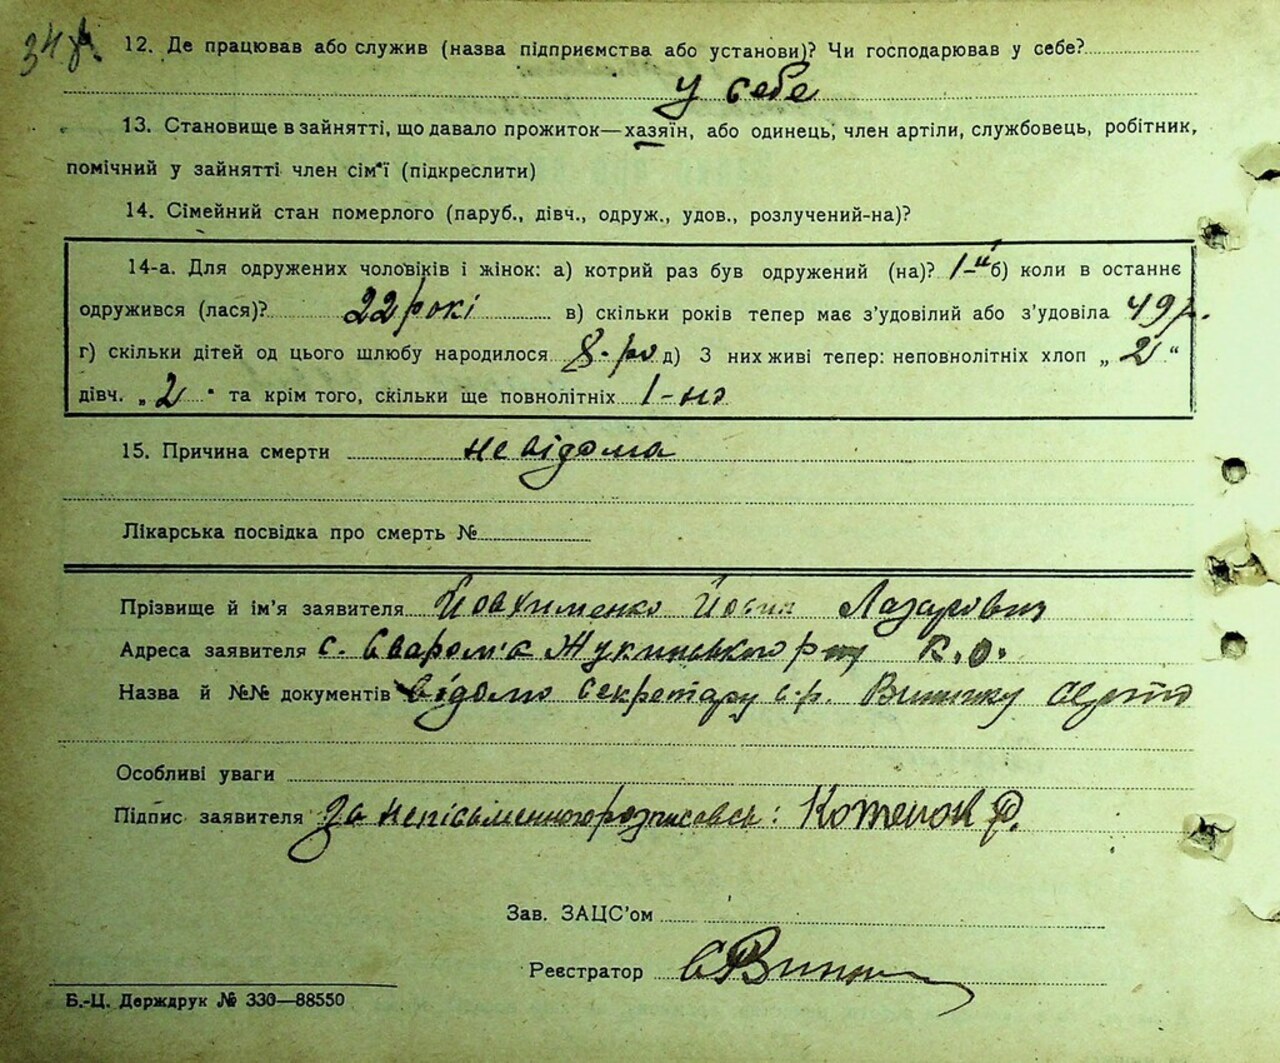 34
12. Де працював або служив (назва підприємства або установи)? Чи господарював у себе?
у себе
13. Становище в зайнятті, що давало прожиток—хазяїн, або одинець, член артіли, службовець, робітник,
помічний у зайнятті член сім'ї (підкреслити)
14. Сімейний стан померлого (паруб., дівч., одруж., удов., розлучений-на)?
14-а. Для одружених чоловіків і жінок: а) котрий раз був одружений (на)? 1-й б) коли в останнє
одружився (лася)? 22 рокі в) скільки років тепер має з'удовілий або з'удовіла 49 р.
г) скільки дітей од цього шлюбу народилося 8-ро д) З них живі тепер: неповнолітніх хлоп „ 2 "
дівч. „ 2 " та крім того, скільки ще повнолітніх 1-но
15. Причина смерти невідома
Лікарська посвідка про смерть №
Прізвище й ім'я заявителя Йовхименко Йосип Лазарович
Адреса заявителя с. Сваром'є Жукинського р-ну К.О.
Назва й №№ документів відомо секретару с.р.
Особливі уваги
Підпис заявителя За непісьменного розписовсь:
Зав. ЗАЦС'ом
Реєстратор
Б.-Ц. Держдрук № 330—88550